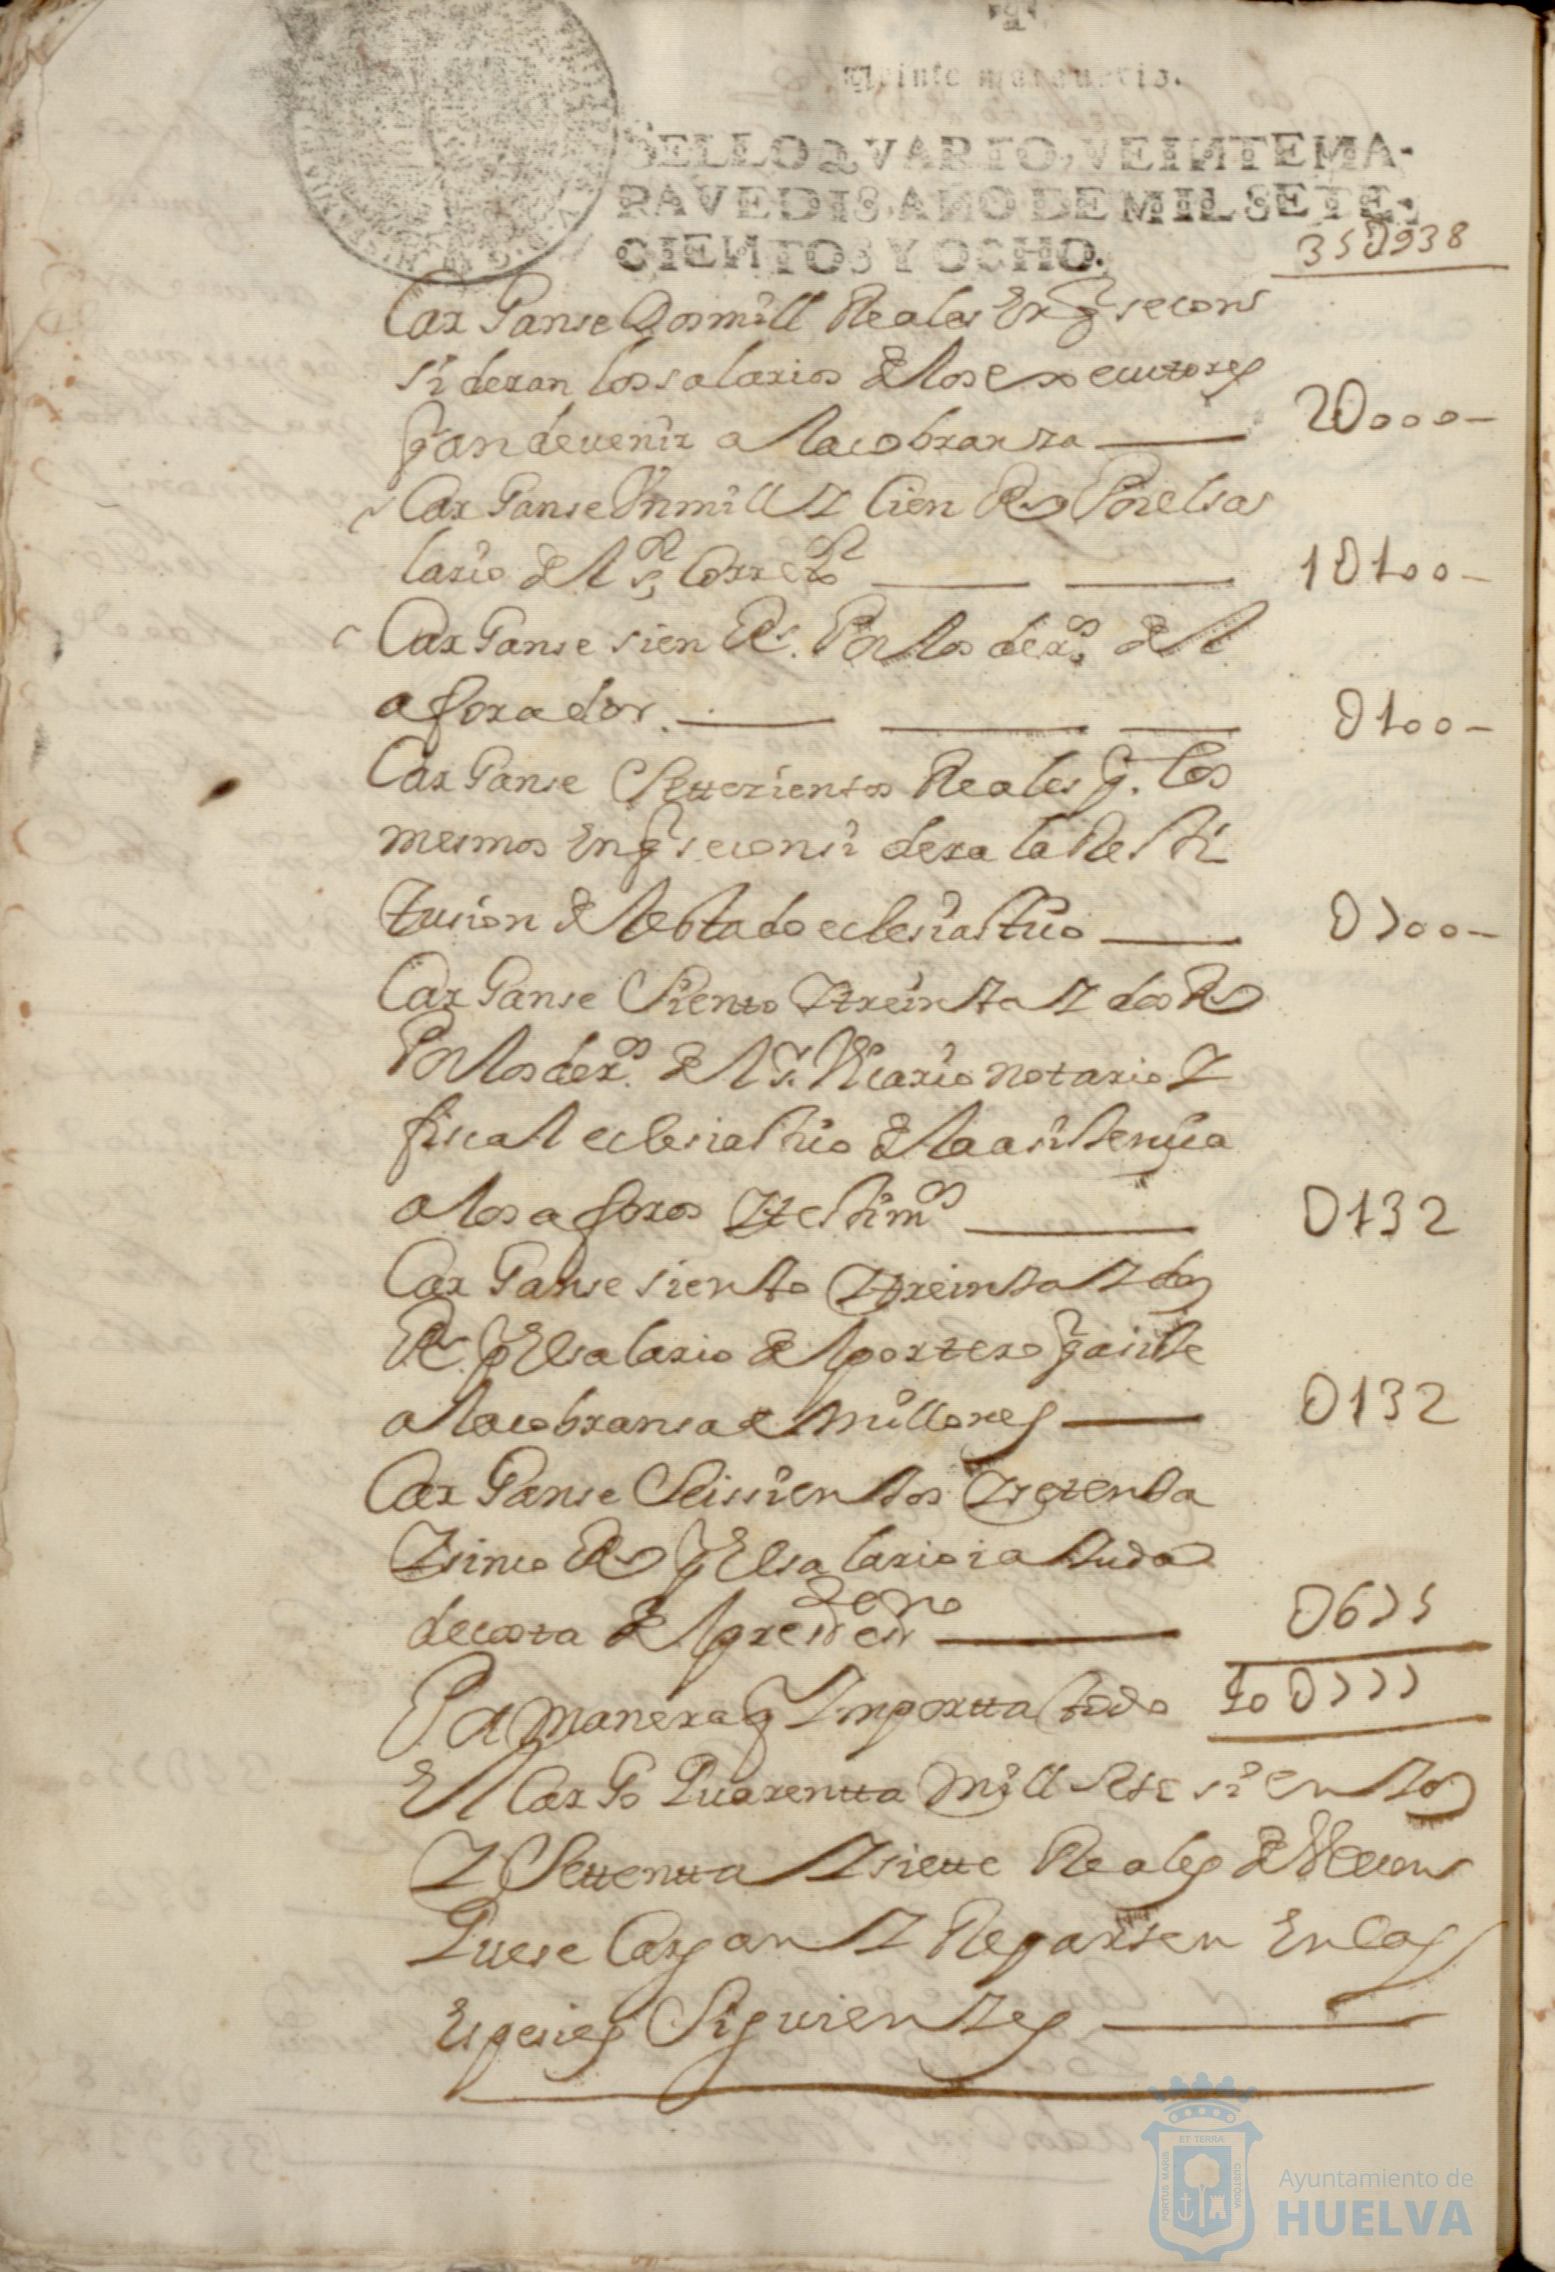 Veinte marauedis.
SELLO QVARTO, VEINTE MA-
RAVEDIS, AÑO DE MIL SETE-
CIENTOS Y OCHO.
35U938
Carganse Dos mill Reales En q̃ se cons
sideran los salarios de los executores
q̃ an de venir a la cobranza 2U000
Carganse Un mill Y Cien Rs Por el sa
lario del sr. Corregor 1U100
Carganse sien Rs. Por los deros del
aforador. U100
Carganse Settezientos Reales q̃. los
mesmos En q̃ se consi dera la Resti
tusion del estado eclesiastico U700
Carganse Siento Y treinta Y dos Rs
Por los deros. del sr. Vicario notario Y
fiscal eclesiastico de la asistencia
a los aforos Y testimos U132
Carganse siento Y treinta Y dos
Rs. p El salario del portero q̃ asiste
a la cobransa de millones U132
Carganse Seissientos Y setenta
Y sinco Rs p El salario i aiuda
de costa del presen U675
40U777
Pr manera q̃ Importta todo
El Cargo Quarentta mill sete sientos
Y Settentta Y siette Reales de Vellon
Que se Cargan Y Reparten En las
Espesies Siguientes
ET TERRA
PORTUS MARIS
CUSTODIA
Ayuntamiento de
HUELVA